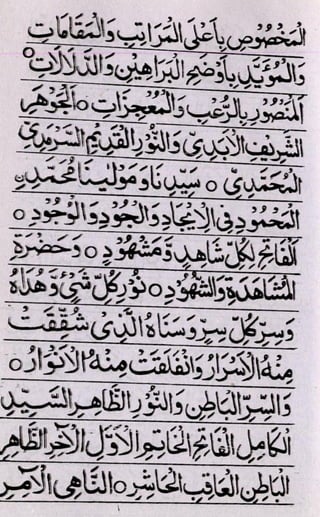 الْمَخْصُوْصِ بِاَعْلَى الْمَرَاتِبِ وَالْمَقَامَاتِ
وَالْمُؤَيَّدِ بِاَوْضَحِ الْبَرَاهِيْنِ وَالدَّلَالَاتِ ○
الْمَنْصُوْرِ بِالرُّعْبِ وَالْمُعْجِزَاتِ ○ الْجَوْهَرِ
الشَّرِيْفِ الْاَبَدِيِّ وَالنُّوْرِ الْقَدِيْمِ السَّرْمَدِيِّ
الْمُحَمَّدِيِّ ○ سَيِّدِنَا وَمَوْلٰيْنَا مُحَمَّدِنِ
الْمَحْمُوْدِ فِى الْاِيْجَادِ وَالْجُوْدِ وَالْوُجُوْدِ ○
الْفَاتِحِ لِكُلِّ شَاهِدٍ وَّمَشْهُوْدٍ ○ وَحَضْرَةِ
الْمُشَاهَدَةِ وَالشُّهُوْدِ ○ نُوْرِ كُلِّ شَيْءٍ وَّهُدَاهُ
وَسِرِّ كُلِّ سِرٍّ وَّسَنَاهُ الَّذِىْ شُقِّقَتْ
مِنْهُ الْاَسْرَارُ وَانْفَلَقَتْ مِنْهُ الْاَنْوَارُ ○
وَالسِّرِّ الْبَاطِنِ وَالنُّوْرِ الظَّاهِرِ السَّيِّدِ
الْكَامِلِ الْفَاتِحِ الْخَاتِمِ الْاَوَّلِ الْاٰخِرِ الظَّاهِرِ
الْبَاطِنِ الْعَاقِبِ الْحَاشِرِ ○ النَّاهِى الْاٰمِرِ